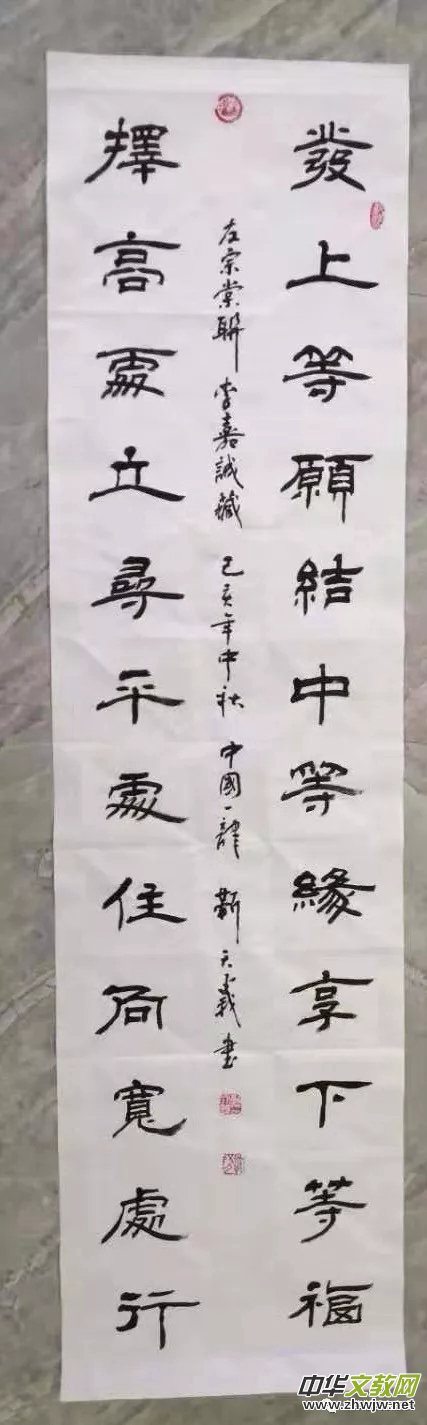 發上等願結中等緣享下等福
左宗棠聯 李嘉誠藏 己亥年中秋 中國一肆 靳天義書
擇高處立尋平處住向寬處行
中华文教网
www.zhwjw.net